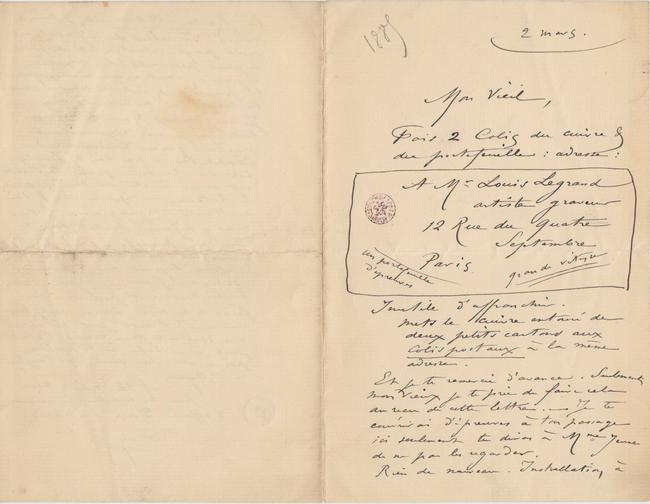 1885
2 mars.
Mon Vieil,
Fais 2 Colis du cuivre &
du portefeuille : adresse :
A Mr Louis Legrand
artiste graveur
12 Rue du Quatre
Septembre
Paris
un portefeuille
d'épreuves
grande vitesse
Inutile d'affranchir.
Mets le cuivre entouré de
deux petits cartons aux
Colis postaux à la même
adresse.
Et je te remercie d'avance. Seulement
mon vieux je te prie de faire cela
au reçu de cette lettre. Je te
d'épreuves à ton passage
ici seulement tu diras à Mme
de ne pas les regarder.
Rien de nouveau. Installation à